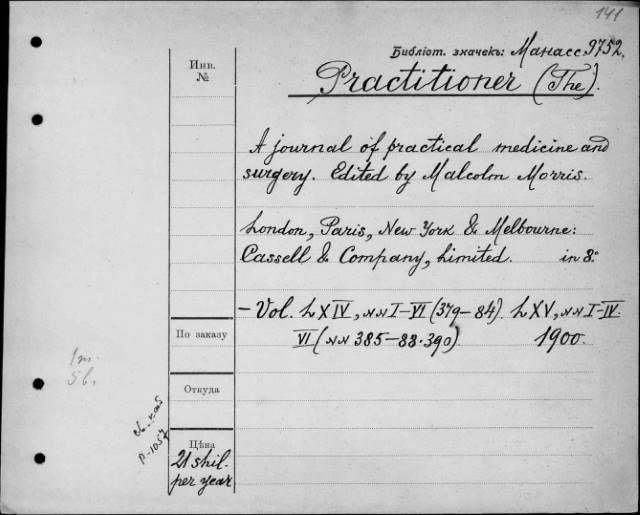 141
Библіот. значекъ: Манасс. 9752.
Инв.
№
Practitioner (The).
A journal of practical medicine and
surgery. Edited by Malcolm Morris.
London, Paris, New York & Melbourne:
Cassell & Company, Limited. in 8.°
– Vol. LXIV, NN I–VI (379–84). LXV, NN I–IV.
VI (NN 385–88. 390) 1900.
По заказу
1 т.
5 в.
Откуда
Цѣна
21 shil.
per year